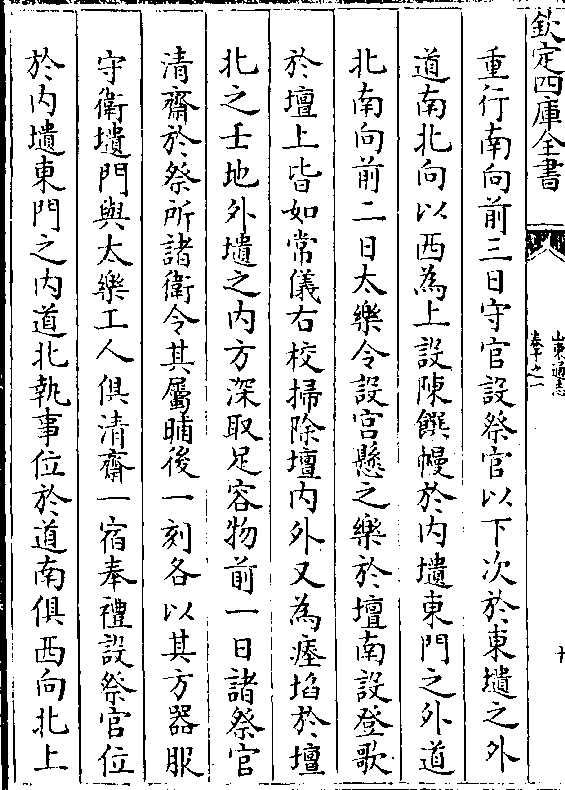 欽定四庫全書
山東通志
卷十之一
十
重行南向前三日守官設祭官以下次於東壝之外
道南北向以西為上設陳饌幔於内壝東門之外道
北南向前二日太樂令設宫懸之樂於壇南設登歌
於壇上皆如常儀右校掃除壇内外又為瘞埳於壇
北之壬地外壝之内方深取足容物前一日諸祭官
清齋於祭所諸衛令其屬晡後一刻各以其方器服
守衛壝門與太樂工人俱清齋一宿奉禮設祭官位
於内壝東門之内道北執事位於道南俱西向北上